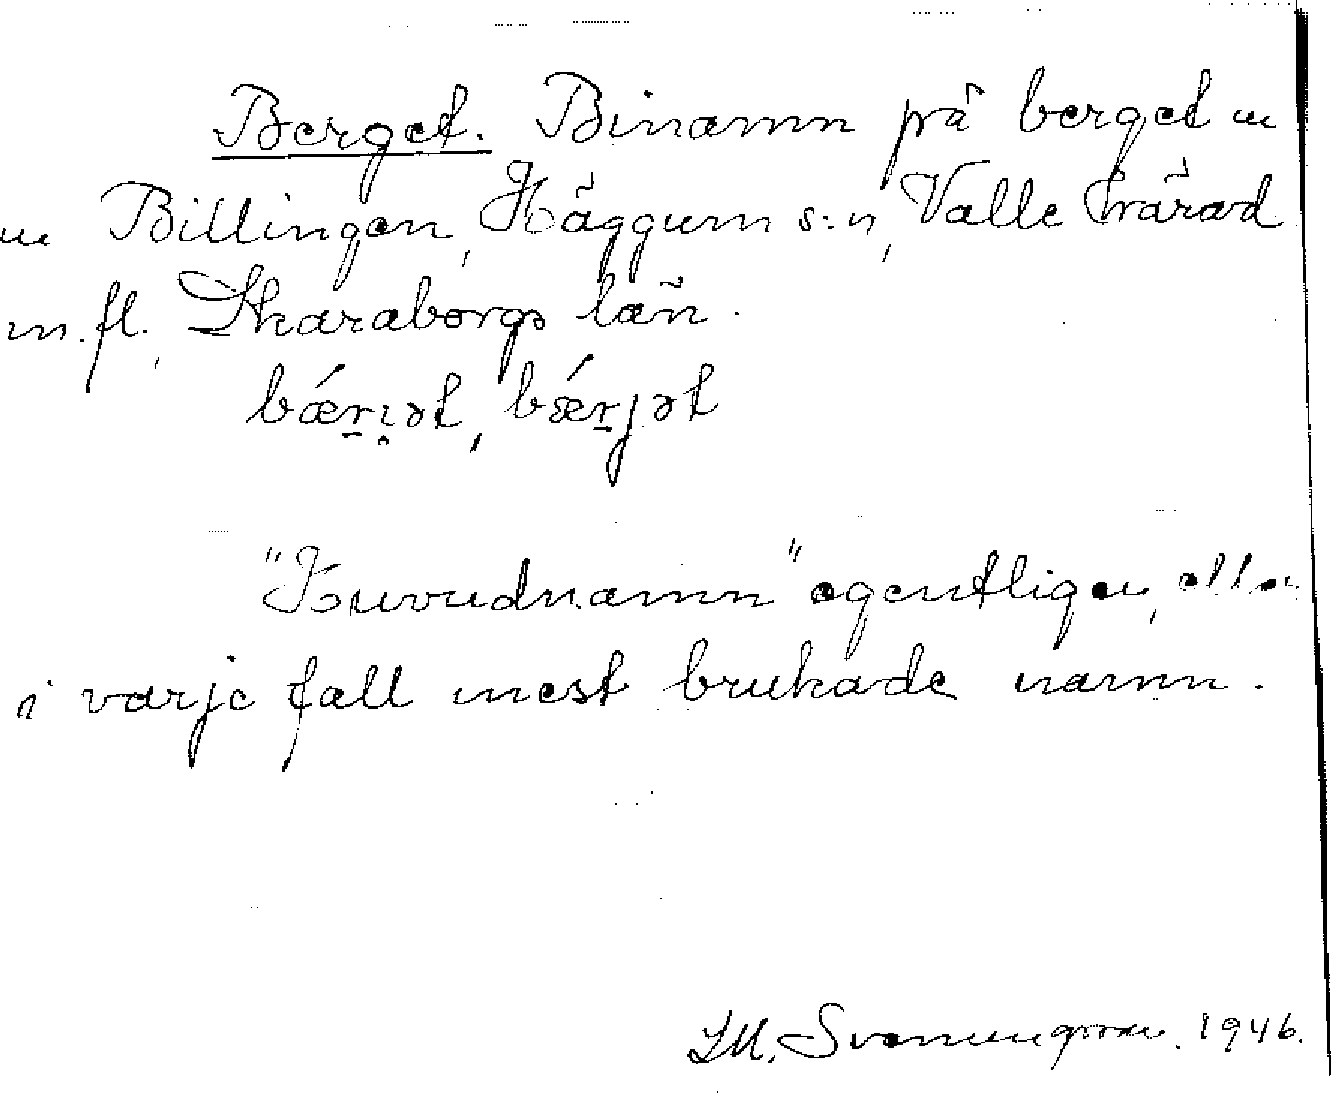 Berget. Binamn på berget
Billingen, Häggum s:n, Valle härad
m.fl., Skaraborgs län.
bǽr̠i̥ət, bǽr̠jət
"Huvudnamn" egentligen, eller
i varje fall mest brukade namn.
Svenungsson. 1946.